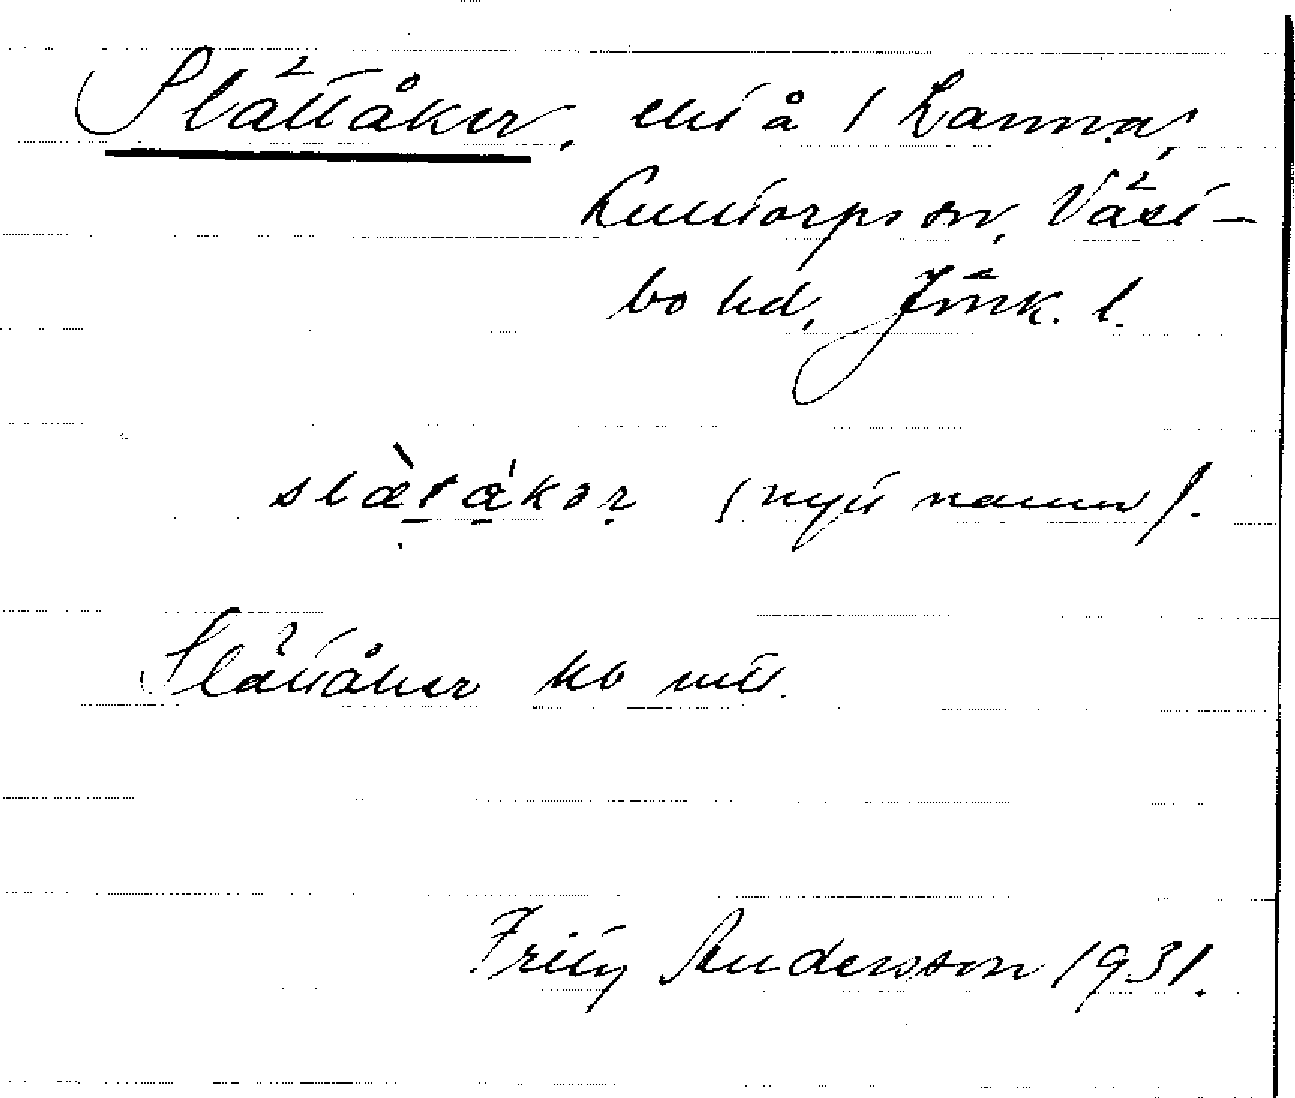 Slättåker, ett å i Lanna,
Kulltorps sn, Väst-
bo hd, Jönk. l.
slätåkər (nytt namn).
Slättåker kb nu.
Fritz Andersson 1931.